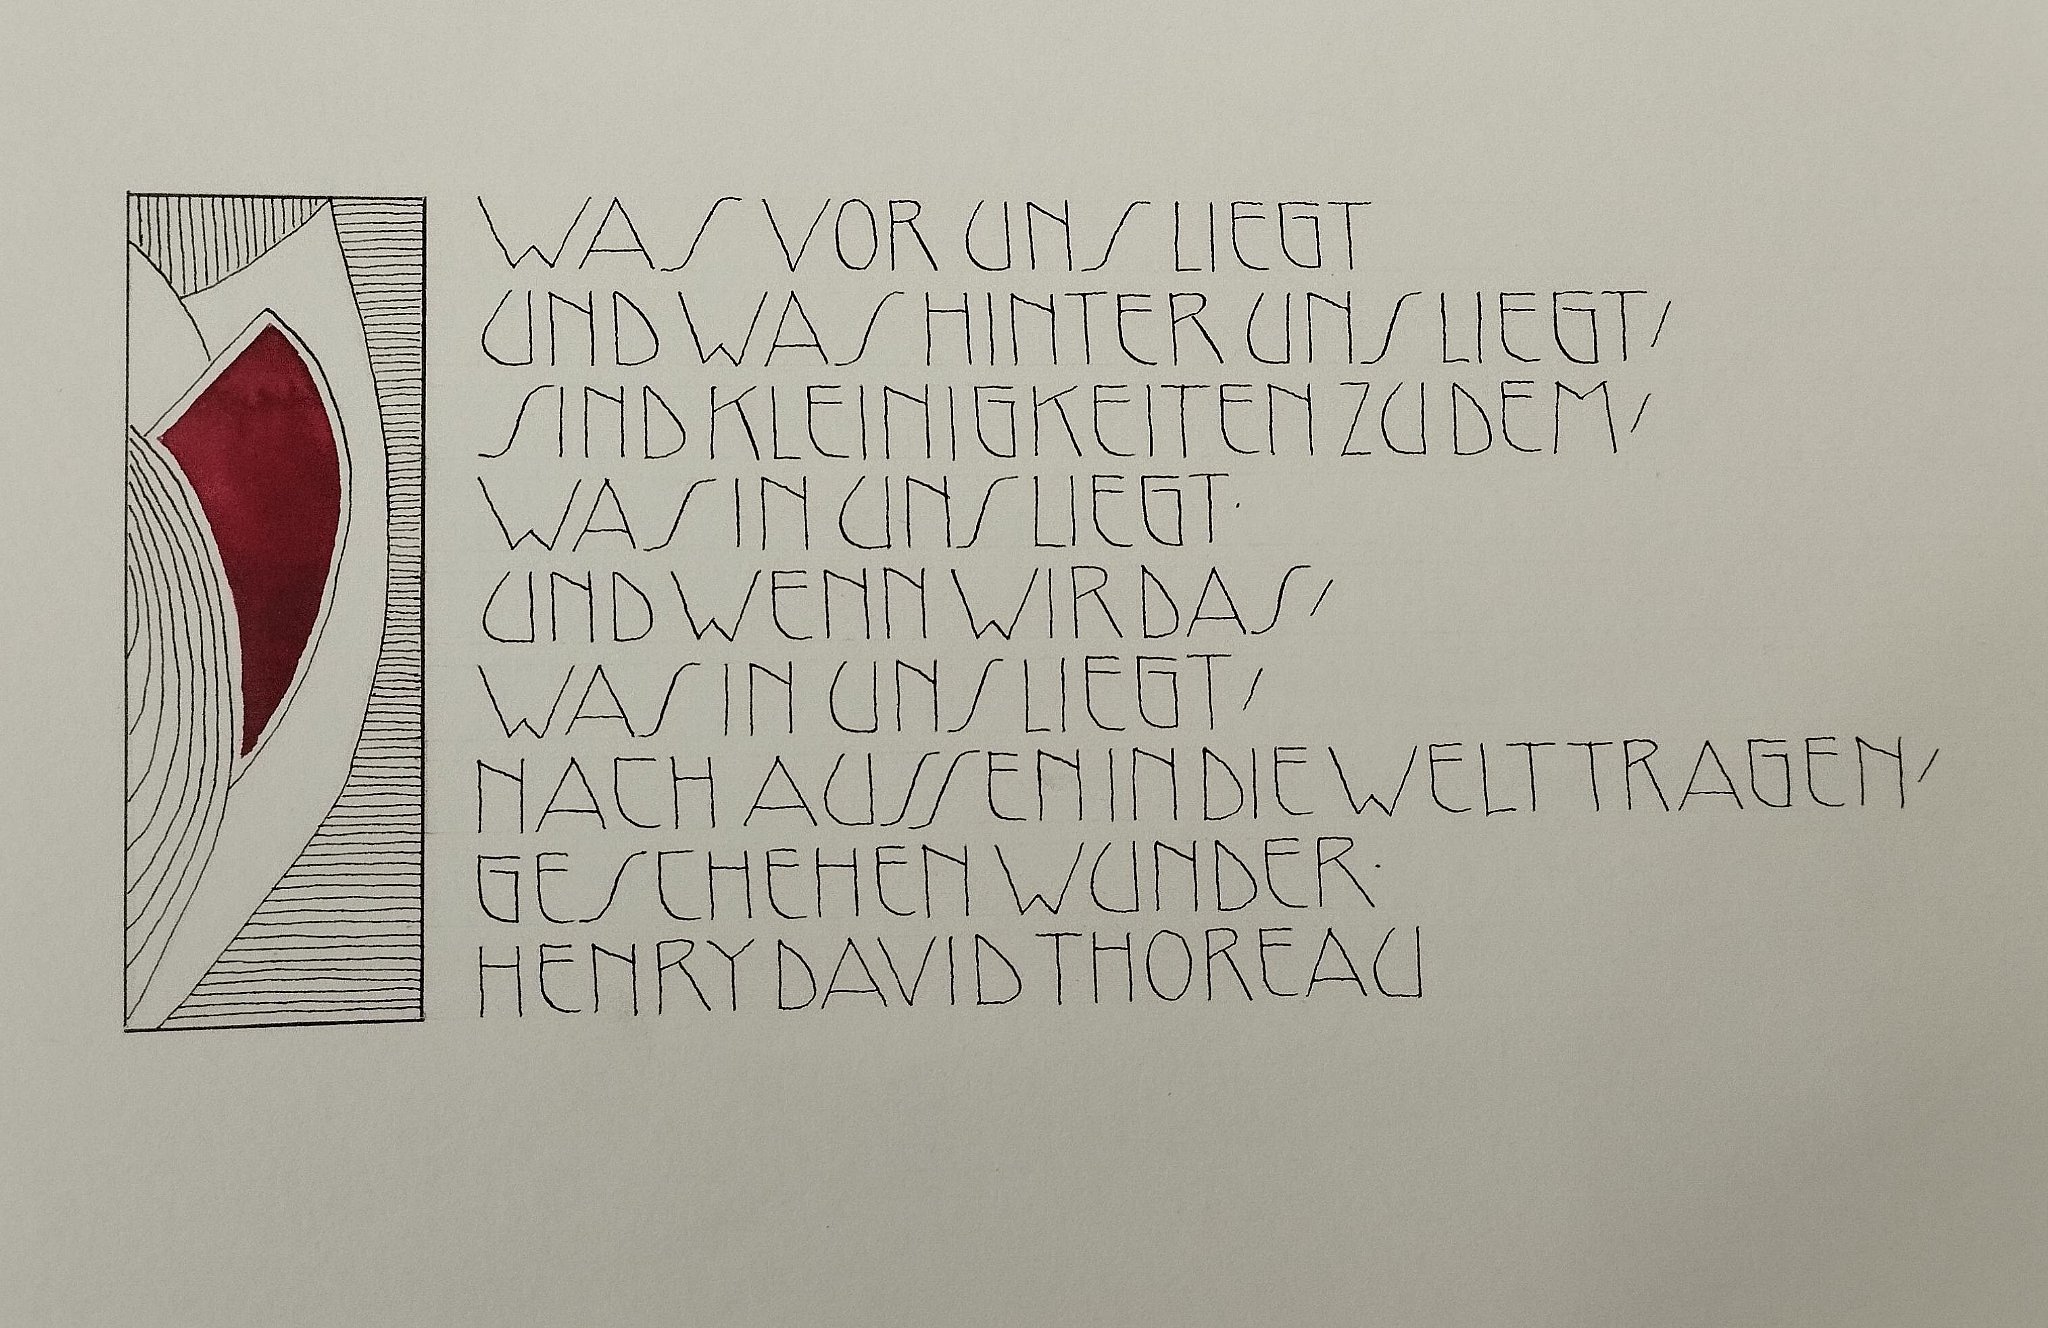 WAS VOR UNS LIEGT
UND WAS HINTER UNS LIEGT,
SIND KLEINIGKEITEN ZU DEM,
WAS IN UNS LIEGT.
UND WENN WIR DAS,
WAS IN UNS LIEGT,
NACH AUSSEN IN DIE WELT TRAGEN,
GESCHEHEN WUNDER.
HENRY DAVID THOREAU